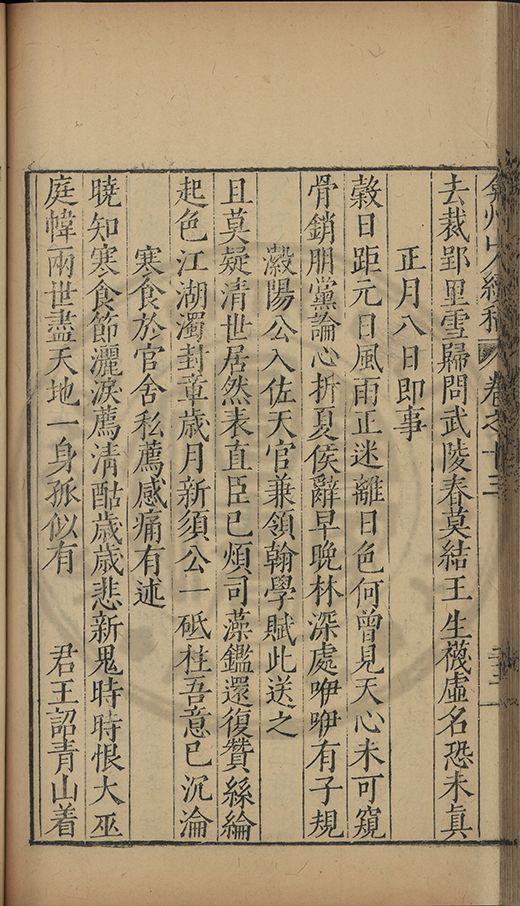 弇州山人續稿 卷之十三
去裁郢里雪歸問武陵春莫結王生襪虛名恐未眞
正月八日即事
穀日距元日風雨正迷離日色何曾見天心未可窺
骨銷朋黨論心折夏侯辭早晚林深處咿咿有子規
瀫陽公入佐天官兼領翰學賦此送之
且莫疑清世居然表直臣已煩司藻鑑還復贊絲綸
起色江湖濁封章歲月新須公一砥柱吾意已沉淪
寒食於官舍私薦感痛有述
曉知寒食節灑淚薦清酤歲歲悲新鬼時時恨大巫
庭幃兩世盡天地一身孤似有 君王詔青山着